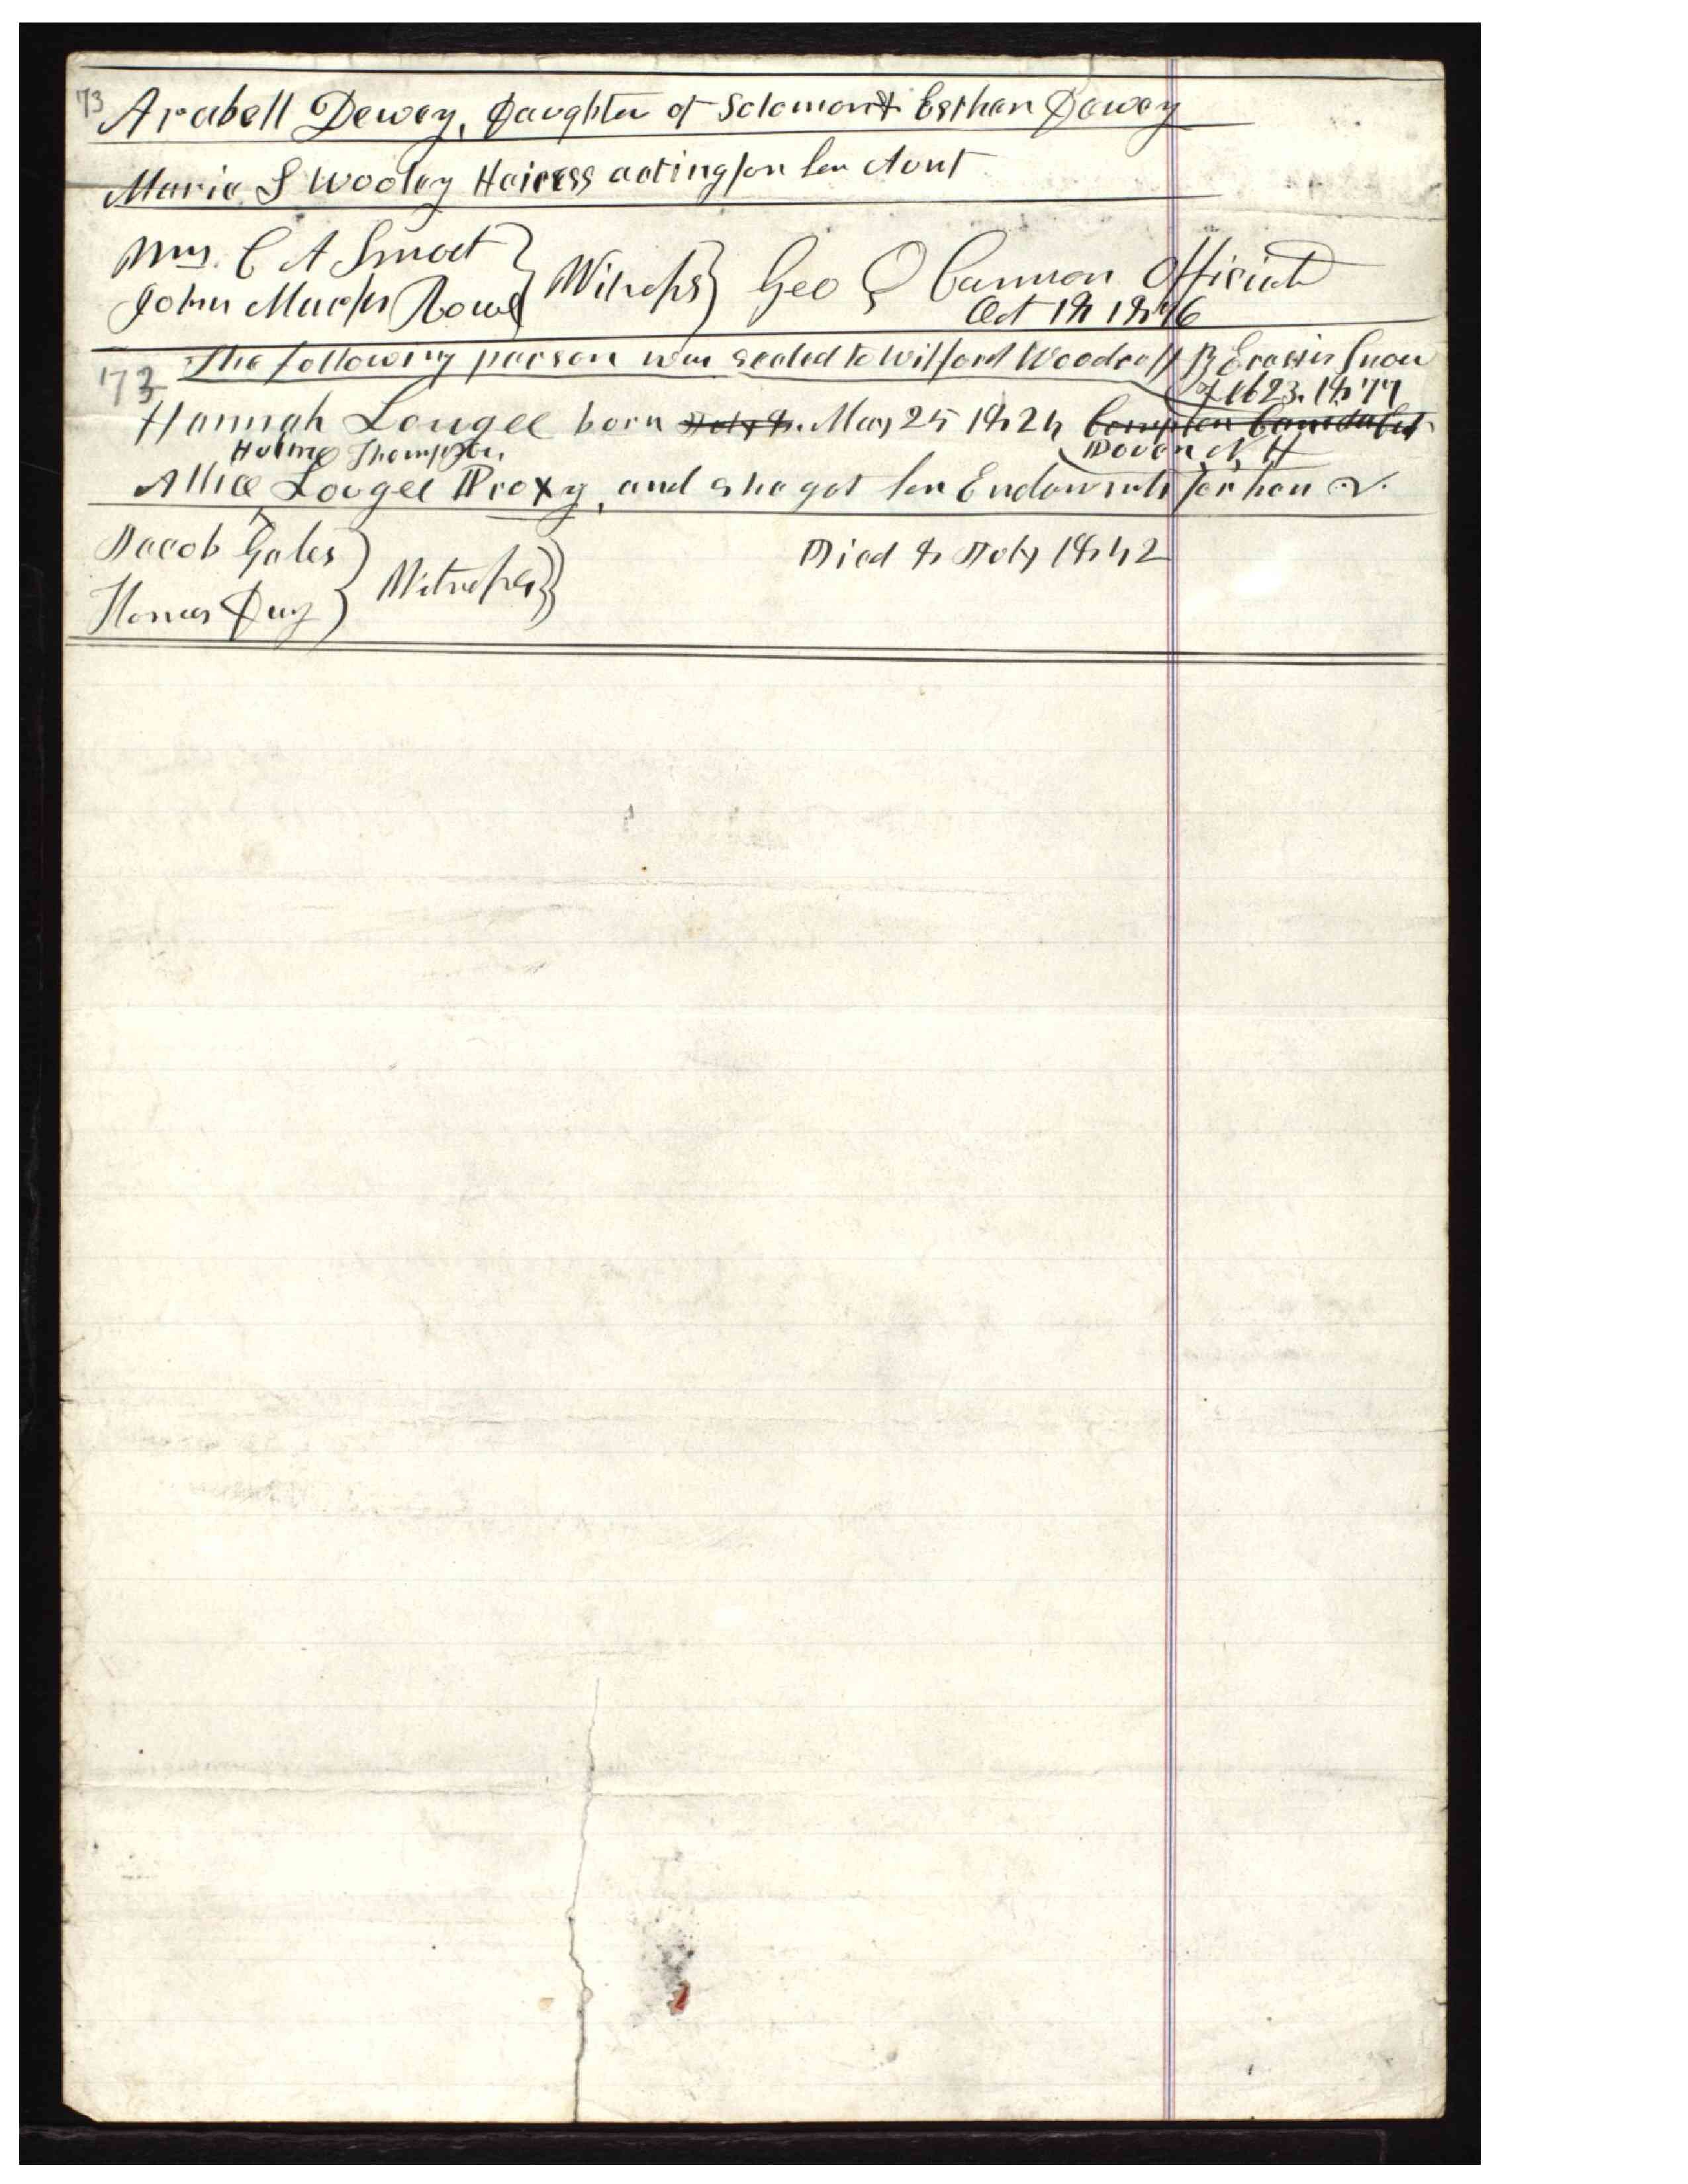 73 Arabell Dewey, Daughter of Solomon & Esther Dewey
Marie S Wooley Heiress acting for her Aunt
Mrs. C A Smoot
John Rowe } Witness } Geo Q Cannon Officiate
Oct 18 1876
The following person was sealed to Wilford Woodruff By Erastus Snow
73 Feb 23. 1877
Hannah Lougee born July 8. May 25 1824 Compton Canada East
Holmes Thompson. Dover N. H
Allice Lougee Proxy, and she got her Endowments for her
Jacob Gates
Died 8 July 1842
Witness